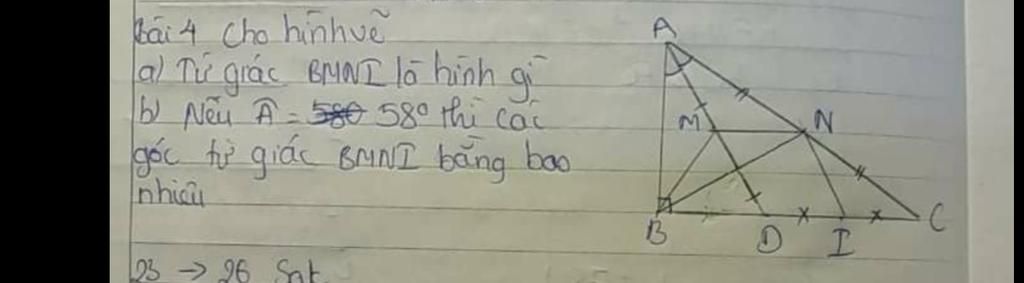 Bài 4 Cho hình vẽ
a) Tứ giác BMNI là hình gì
b) Nếu Â = 580 58° thì các
góc tứ giác BMNI bằng bao
nhiêu
23 → 26 Sgk
A
M
N
B
D
I
C